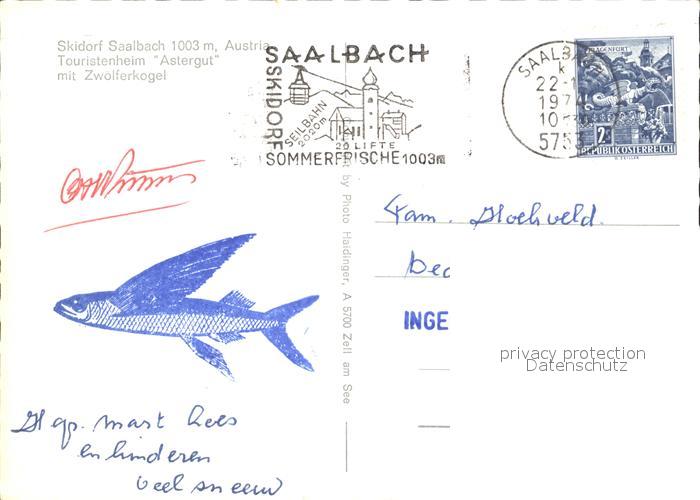 Skidorf Saalbach 1003 m, Austria
Touristenheim "Astergut"
mit Zwölferkogel
SAALBACH
SKIDORF
SEILBAHN
2020m
20 LIFTE
SOMMERFRISCHE 1003m
SAALBA
k
22-1
1974
10
5753
KLAGENFURT
2S
REPUBLIK ÖSTERREICH
by Photo Haidinger, A 5700 Zell am See
Fam.
INGE
privacy protection
Datenschutz
gr. mart Kees
en kinderen
veel sneeuw